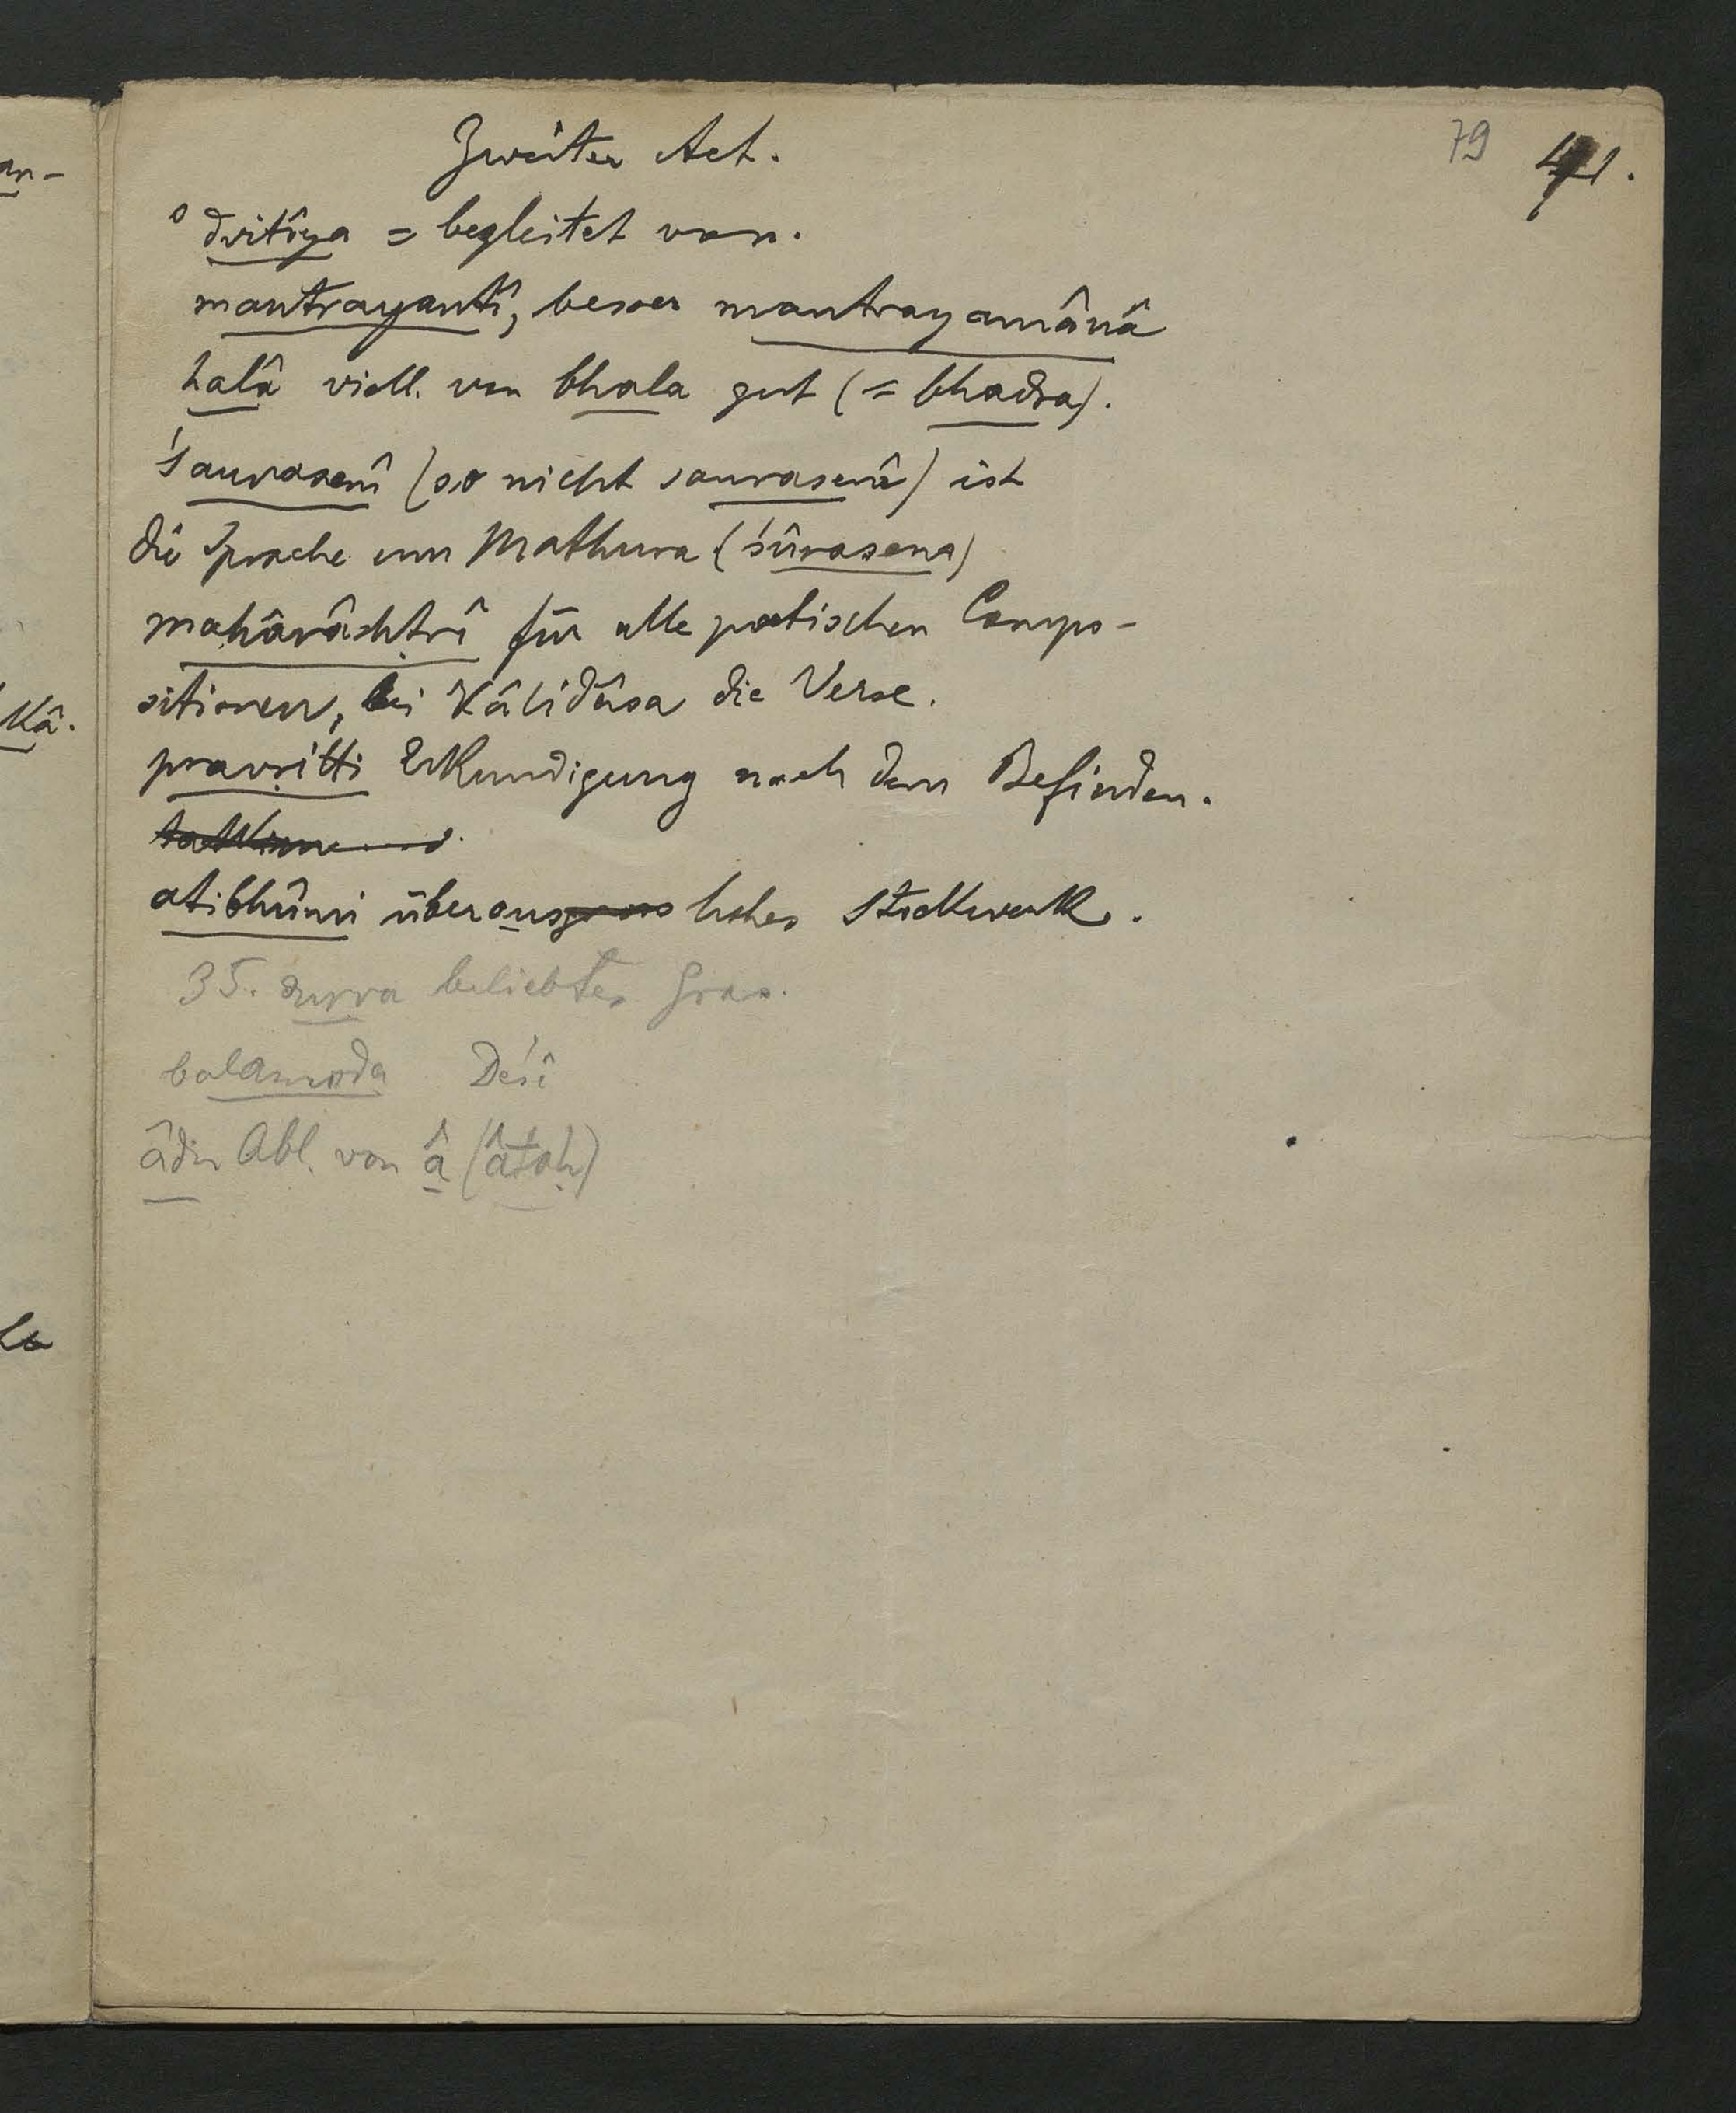 79 41.
Zweiter Act.
°dvitîya = begleitet von.
mantrayantî, besser mantrayamânâ
halâ viell. von bhala gut (= bhadra).
śaurasenî (so nicht saurasenî) ist
die Sprache um Mathura (śûrasena)
mahârâshṭrî für alle poetischen Compo-
sitionen, bei Kâlidâsa die Verse.
pravṛitti Erkundigung nach dem Befinden.
atibhûmi überaus hohes Stockwerk.
35. durva beliebtes Gras.
balamoda Deśî
âdu Abl. von â (âtaḥ)
an-
Kâ.